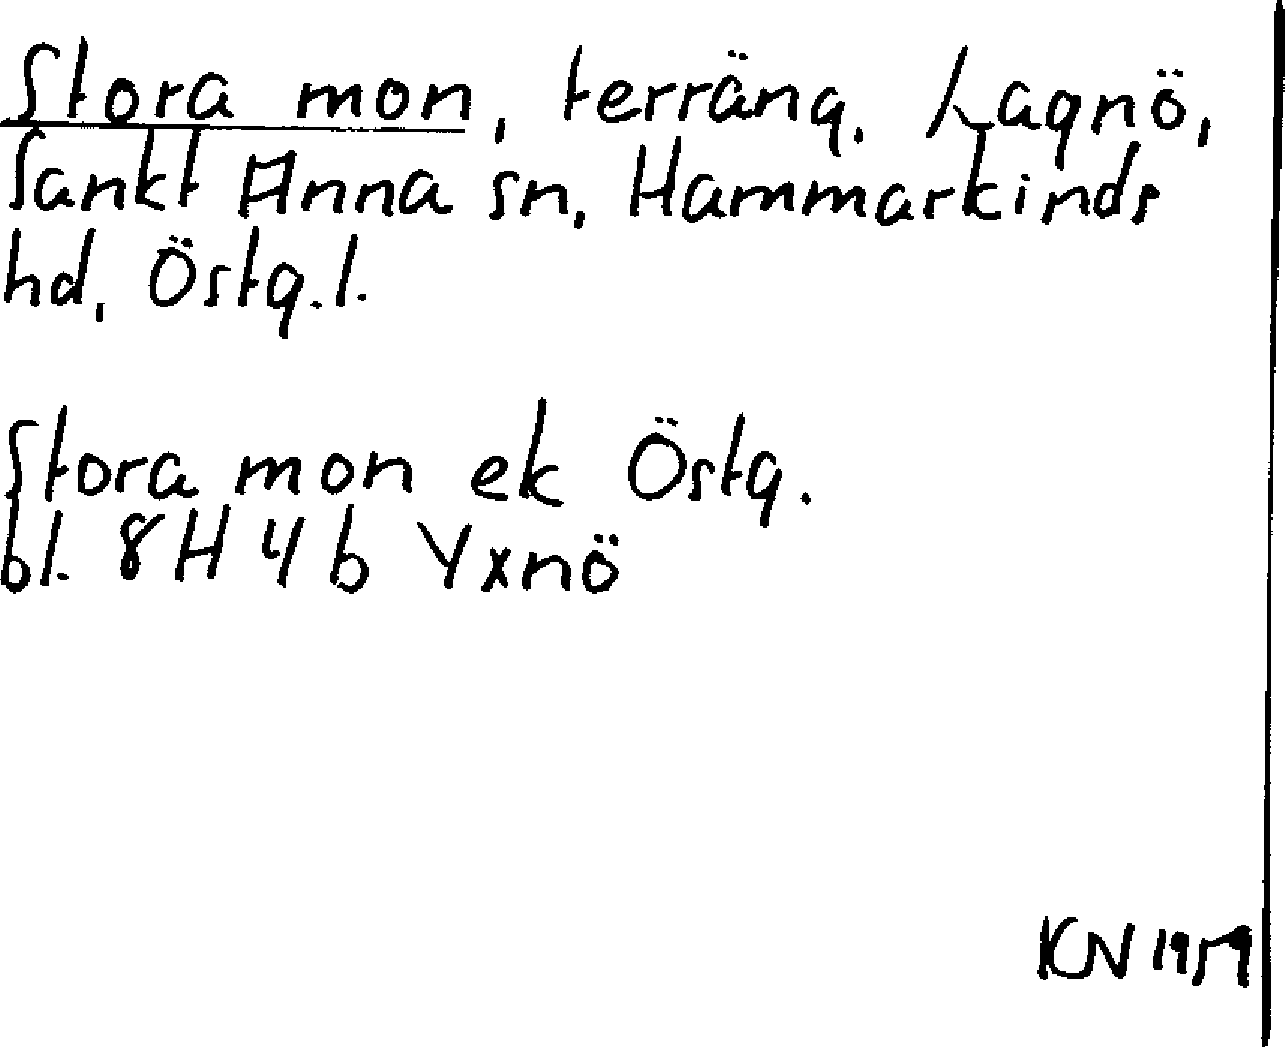 Stora mon, terräng, Lagnö,
Sankt Anna sn, Hammarkinds
hd, Östg.l.
Stora mon ek Östg.
bl. 8H 4b Yxnö
KN 1959